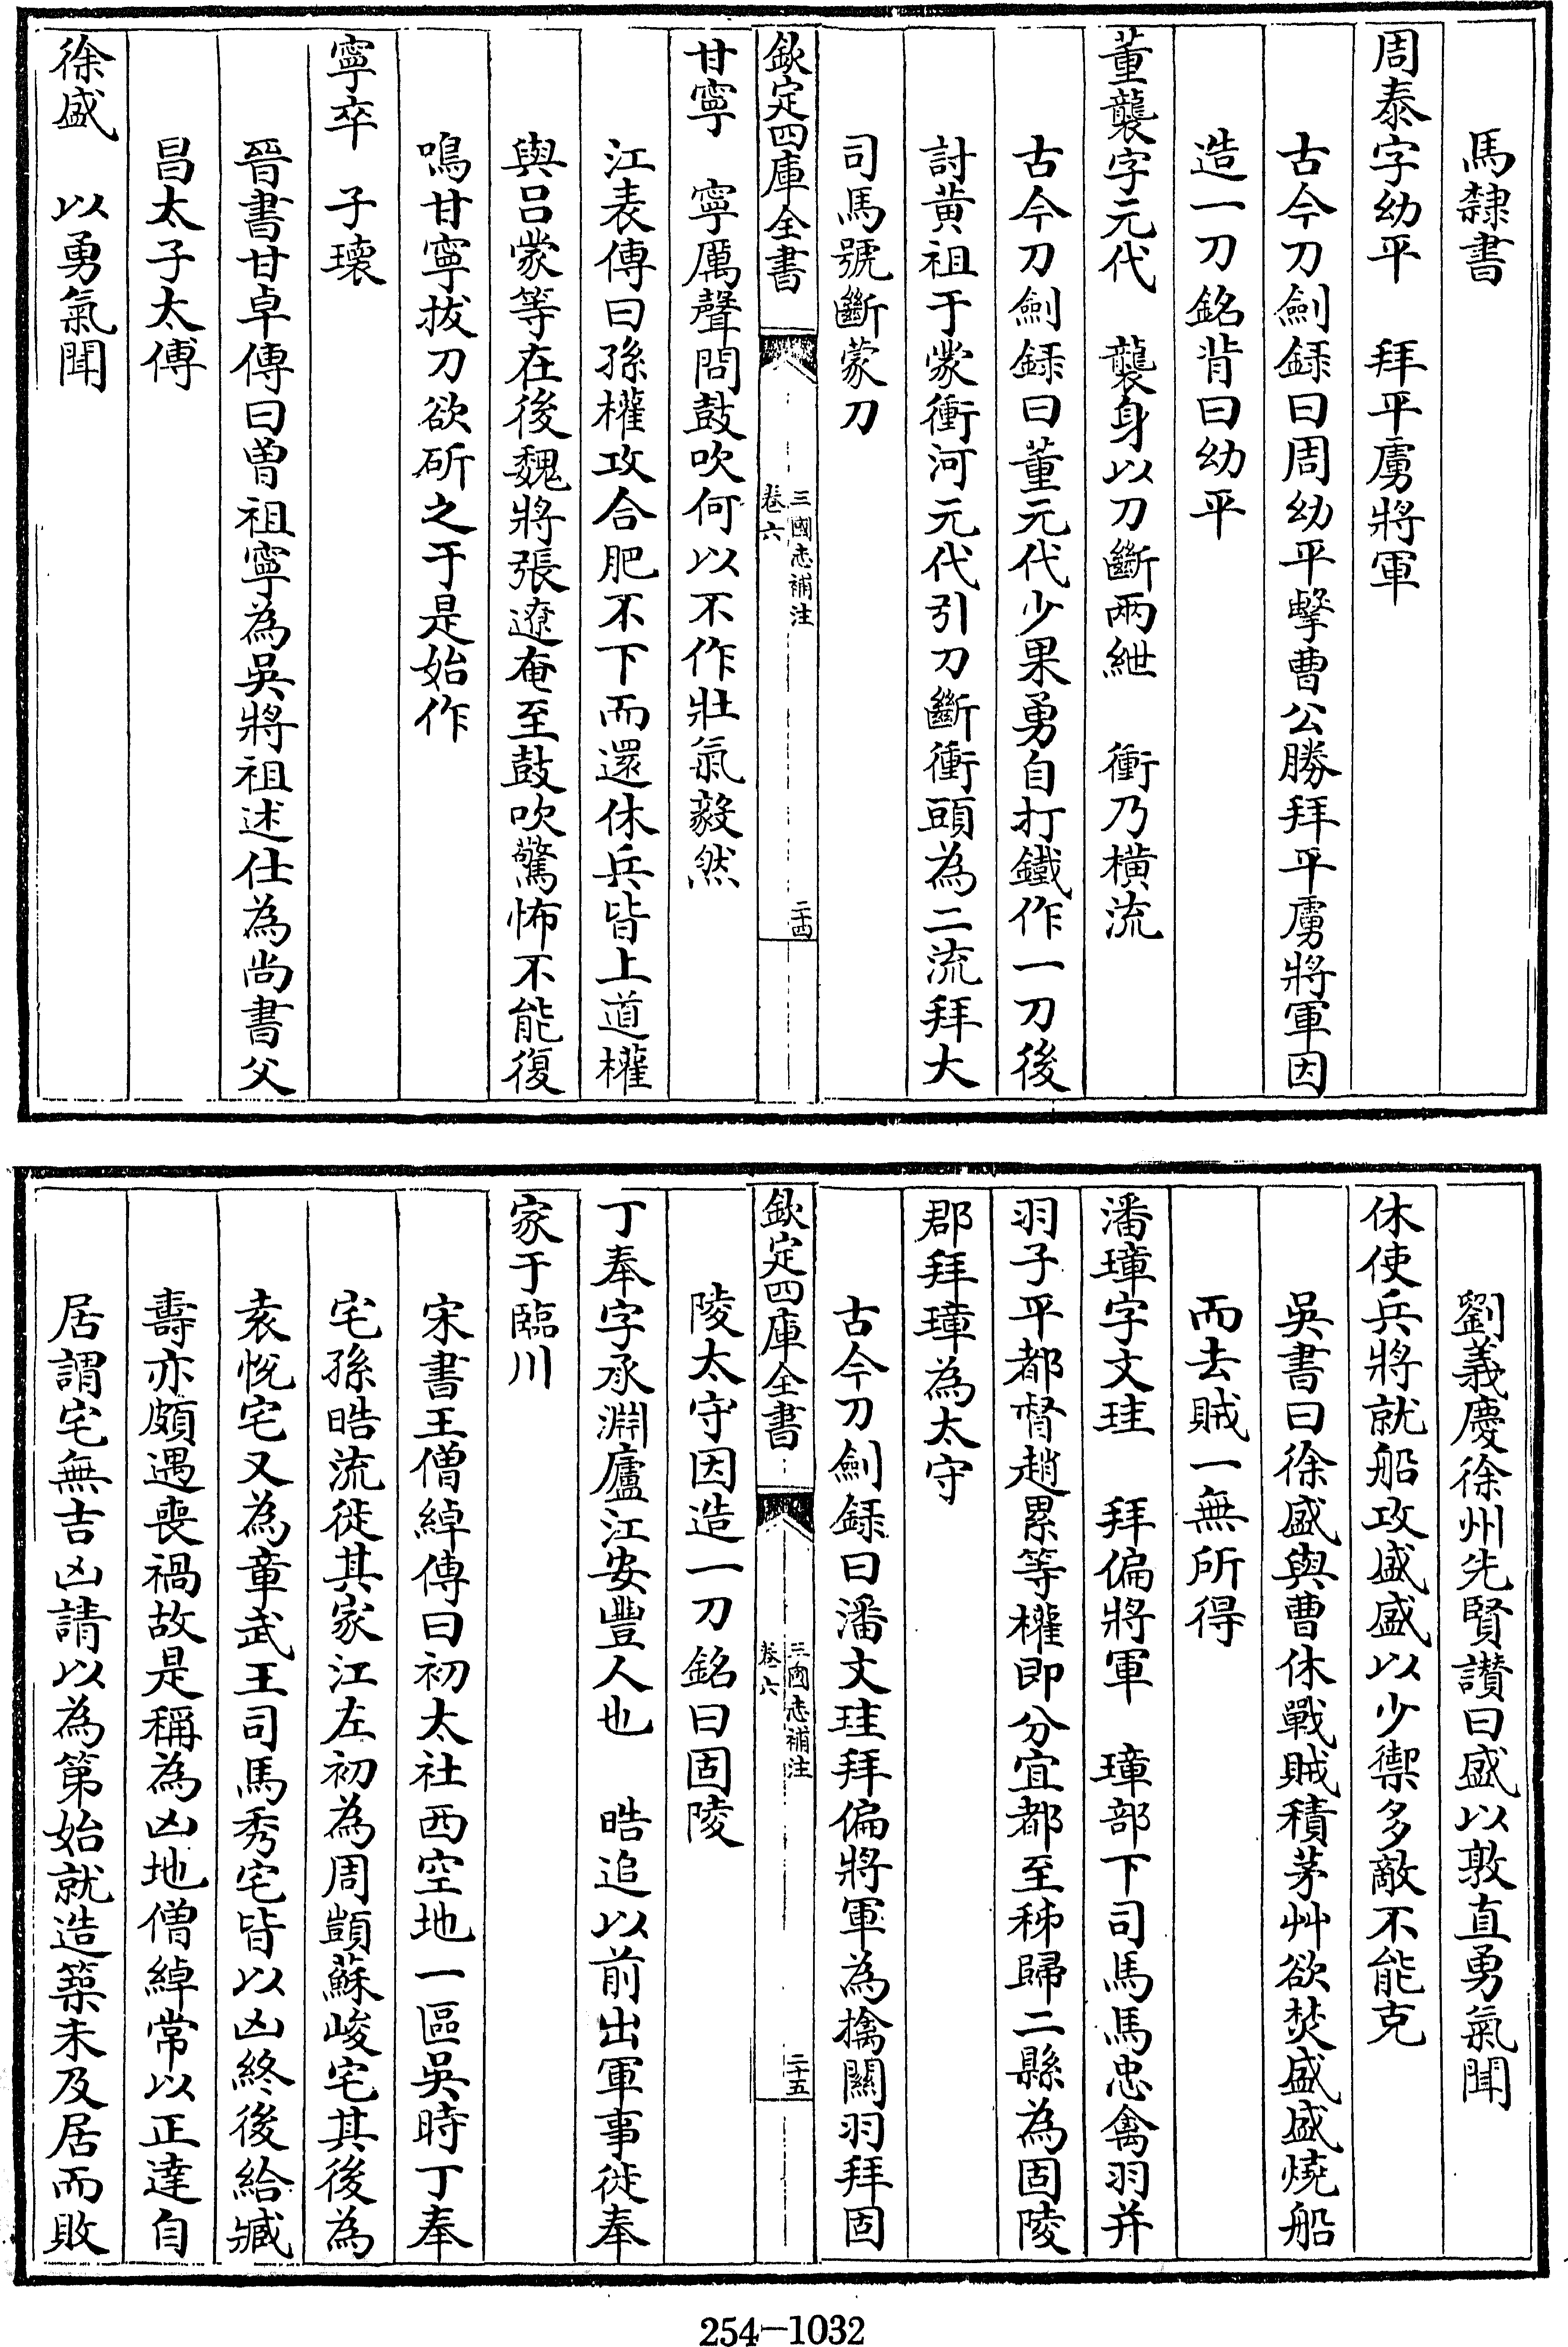 馬隸書
周泰字幼平　拜平虜將軍
古今刀劍録曰周幼平擊曹公勝拜平虜將軍因
造一刀銘背曰幼平
董襲字元代　襲身以刀斷兩紲　衝乃橫流
古今刀劍録曰董元代少果勇自打鐵作一刀後
討黃祖于蒙衝河元代引刀斷衝頭為二流拜大
司馬號斷蒙刀
欽定四庫全書
三國志補注
卷六
二十四
甘寧　寧厲聲問鼓吹何以不作壯氣毅然
江表傳曰孫權攻合肥不下而還休兵皆上道權
與呂蒙等在後魏將張遼奄至鼓吹驚怖不能復
鳴甘寧拔刀欲斫之于是始作
寧卒　子瓌
晉書甘卓傳曰曾祖寧為吳將祖述仕為尚書父
昌太子太傅
徐盛　以勇氣聞
劉義慶徐州先賢讃曰盛以敦直勇氣聞
休使兵將就船攻盛盛以少禦多敵不能克
吳書曰徐盛與曹休戰賊積茅艸欲焚盛盛燒船
而去賊一無所得
潘璋字文珪　拜偏將軍　璋部下司馬馬忠禽羽并
羽子平都督趙累等權即分宜都至秭歸二縣為固陵
郡拜璋為太守
古今刀劍録曰潘文珪拜偏將軍為擒關羽拜固
欽定四庫全書
三國志補注
卷六
二十五
陵太守因造一刀銘曰固陵
丁奉字承淵廬江安豐人也　晧追以前出軍事徙奉
家于臨川
宋書王僧綽傳曰初太社西空地一區吳時丁奉
宅孫晧流徙其家江左初為周顗蘇峻宅其後為
袁悅宅又為章武王司馬秀宅皆以凶終後給臧
壽亦頗遇喪禍故是稱為凶地僧綽常以正達自
居謂宅無吉凶請以為第始就造築未及居而敗
254—1032